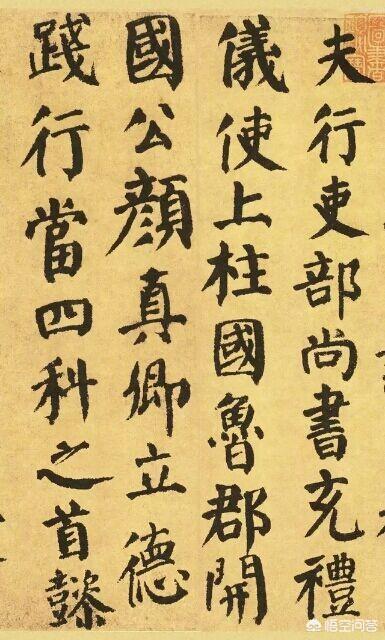 夫行吏部尚書充禮
儀使上柱國魯郡開
國公顔真卿立德
踐行當四科之首懿
悟空问答